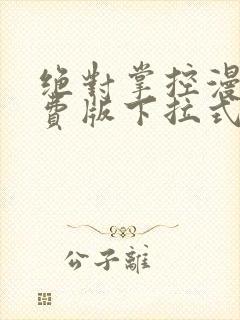 絶對掌控漫
費版下拉式
公子離